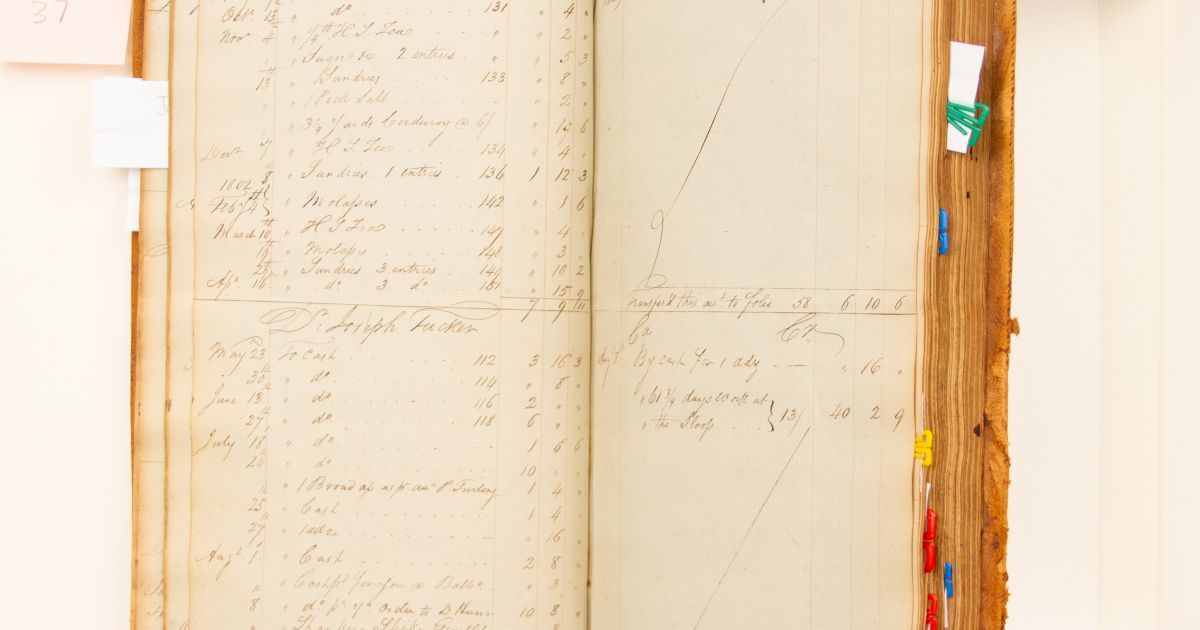 37
Octr. 13 " do 131 " 4 "
Novr 4 " 1/4 th H. S. Tea " " 2 "
" Sugar &c 2 entries " " 5 3
13th " Sundries 133 " 8 "
" 1 Peck Salt " 2 "
" 3 1/4 Yards Corduroy @ 6/ " 6
Decr 7 " H. S. Tea 134 " 4 "
8 " Sundries 1 entries 136 1 12 3
1802
Feby 4th " Molasses 142 " 1 6
March 10th " H. S. Tea 147 " 4 "
19th " Molasses 148 " 3 "
" Sundries 3 entries 149 " 10 2
Apl. 16 " do 3 do 151 " 15 9
7 9 11
Dr. Joseph Tucker
May 23 To Cash 112 3 16 3
30 " do 114 " 8 "
June 13 " do 116 2 " "
27 " do 118 6 " "
July 18 " do 1 6 6
24 " do 10 " "
" 1 Broad ax as pr. act. P. Furlong 1 4 "
25 " Cash 1 4 "
27 " 1 adz " 16 "
Augt. 1 " Cash 2 8 "
" Cash pd for you " 3 "
8 " do pr. yr. Order to D. 10 8 "
Transferd this act. to folio 58 6 10 6
Ca Cr.
By cash for 1 adz " 16 "
" 61 3/4 days work at
" the Sloop 13/ 40 2 9